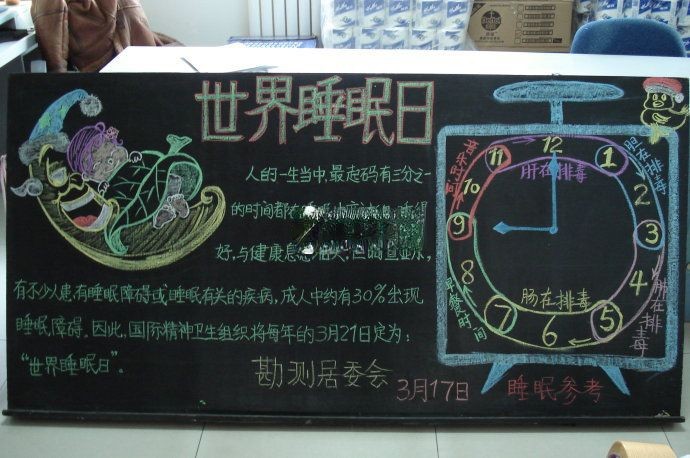 世界睡眠日
人的一生当中,最起码有三分之一
的时间都
好,与健康息息相关,但的查显示,
有不少人患有睡眠障碍或睡眠有关的疾病,成人中约有30%出现
睡眠障碍。因此,国际精神卫生组织将每年的3月21日定为:
“世界睡眠日”。
勘测居委会
3月17日
12
1
2
3
4
5
6
7
8
9
10
11
肝在排毒
胆在排毒
肺在排毒
肠在排毒
早餐时间
睡眠参考